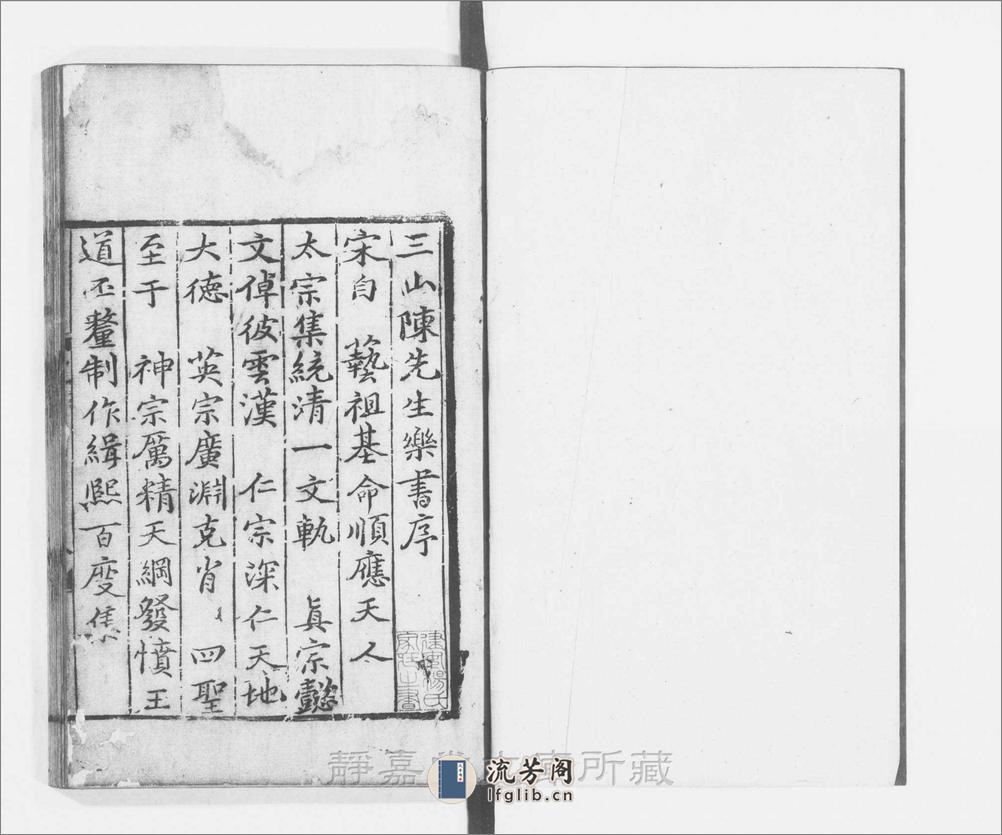 三山陳先生樂書序
宋自　藝祖基命順應天人
太宗集統清一文軌　眞宗懿
文倬彼雲漢　仁宗深仁天地
大德　英宗廣淵克肖　四聖
至于　神宗厲精天綱發憤王
道丕釐制作緝熙百度集
建安楊氏
家藏之書
靜嘉堂文庫所藏
流芳阁
lfglib.cn